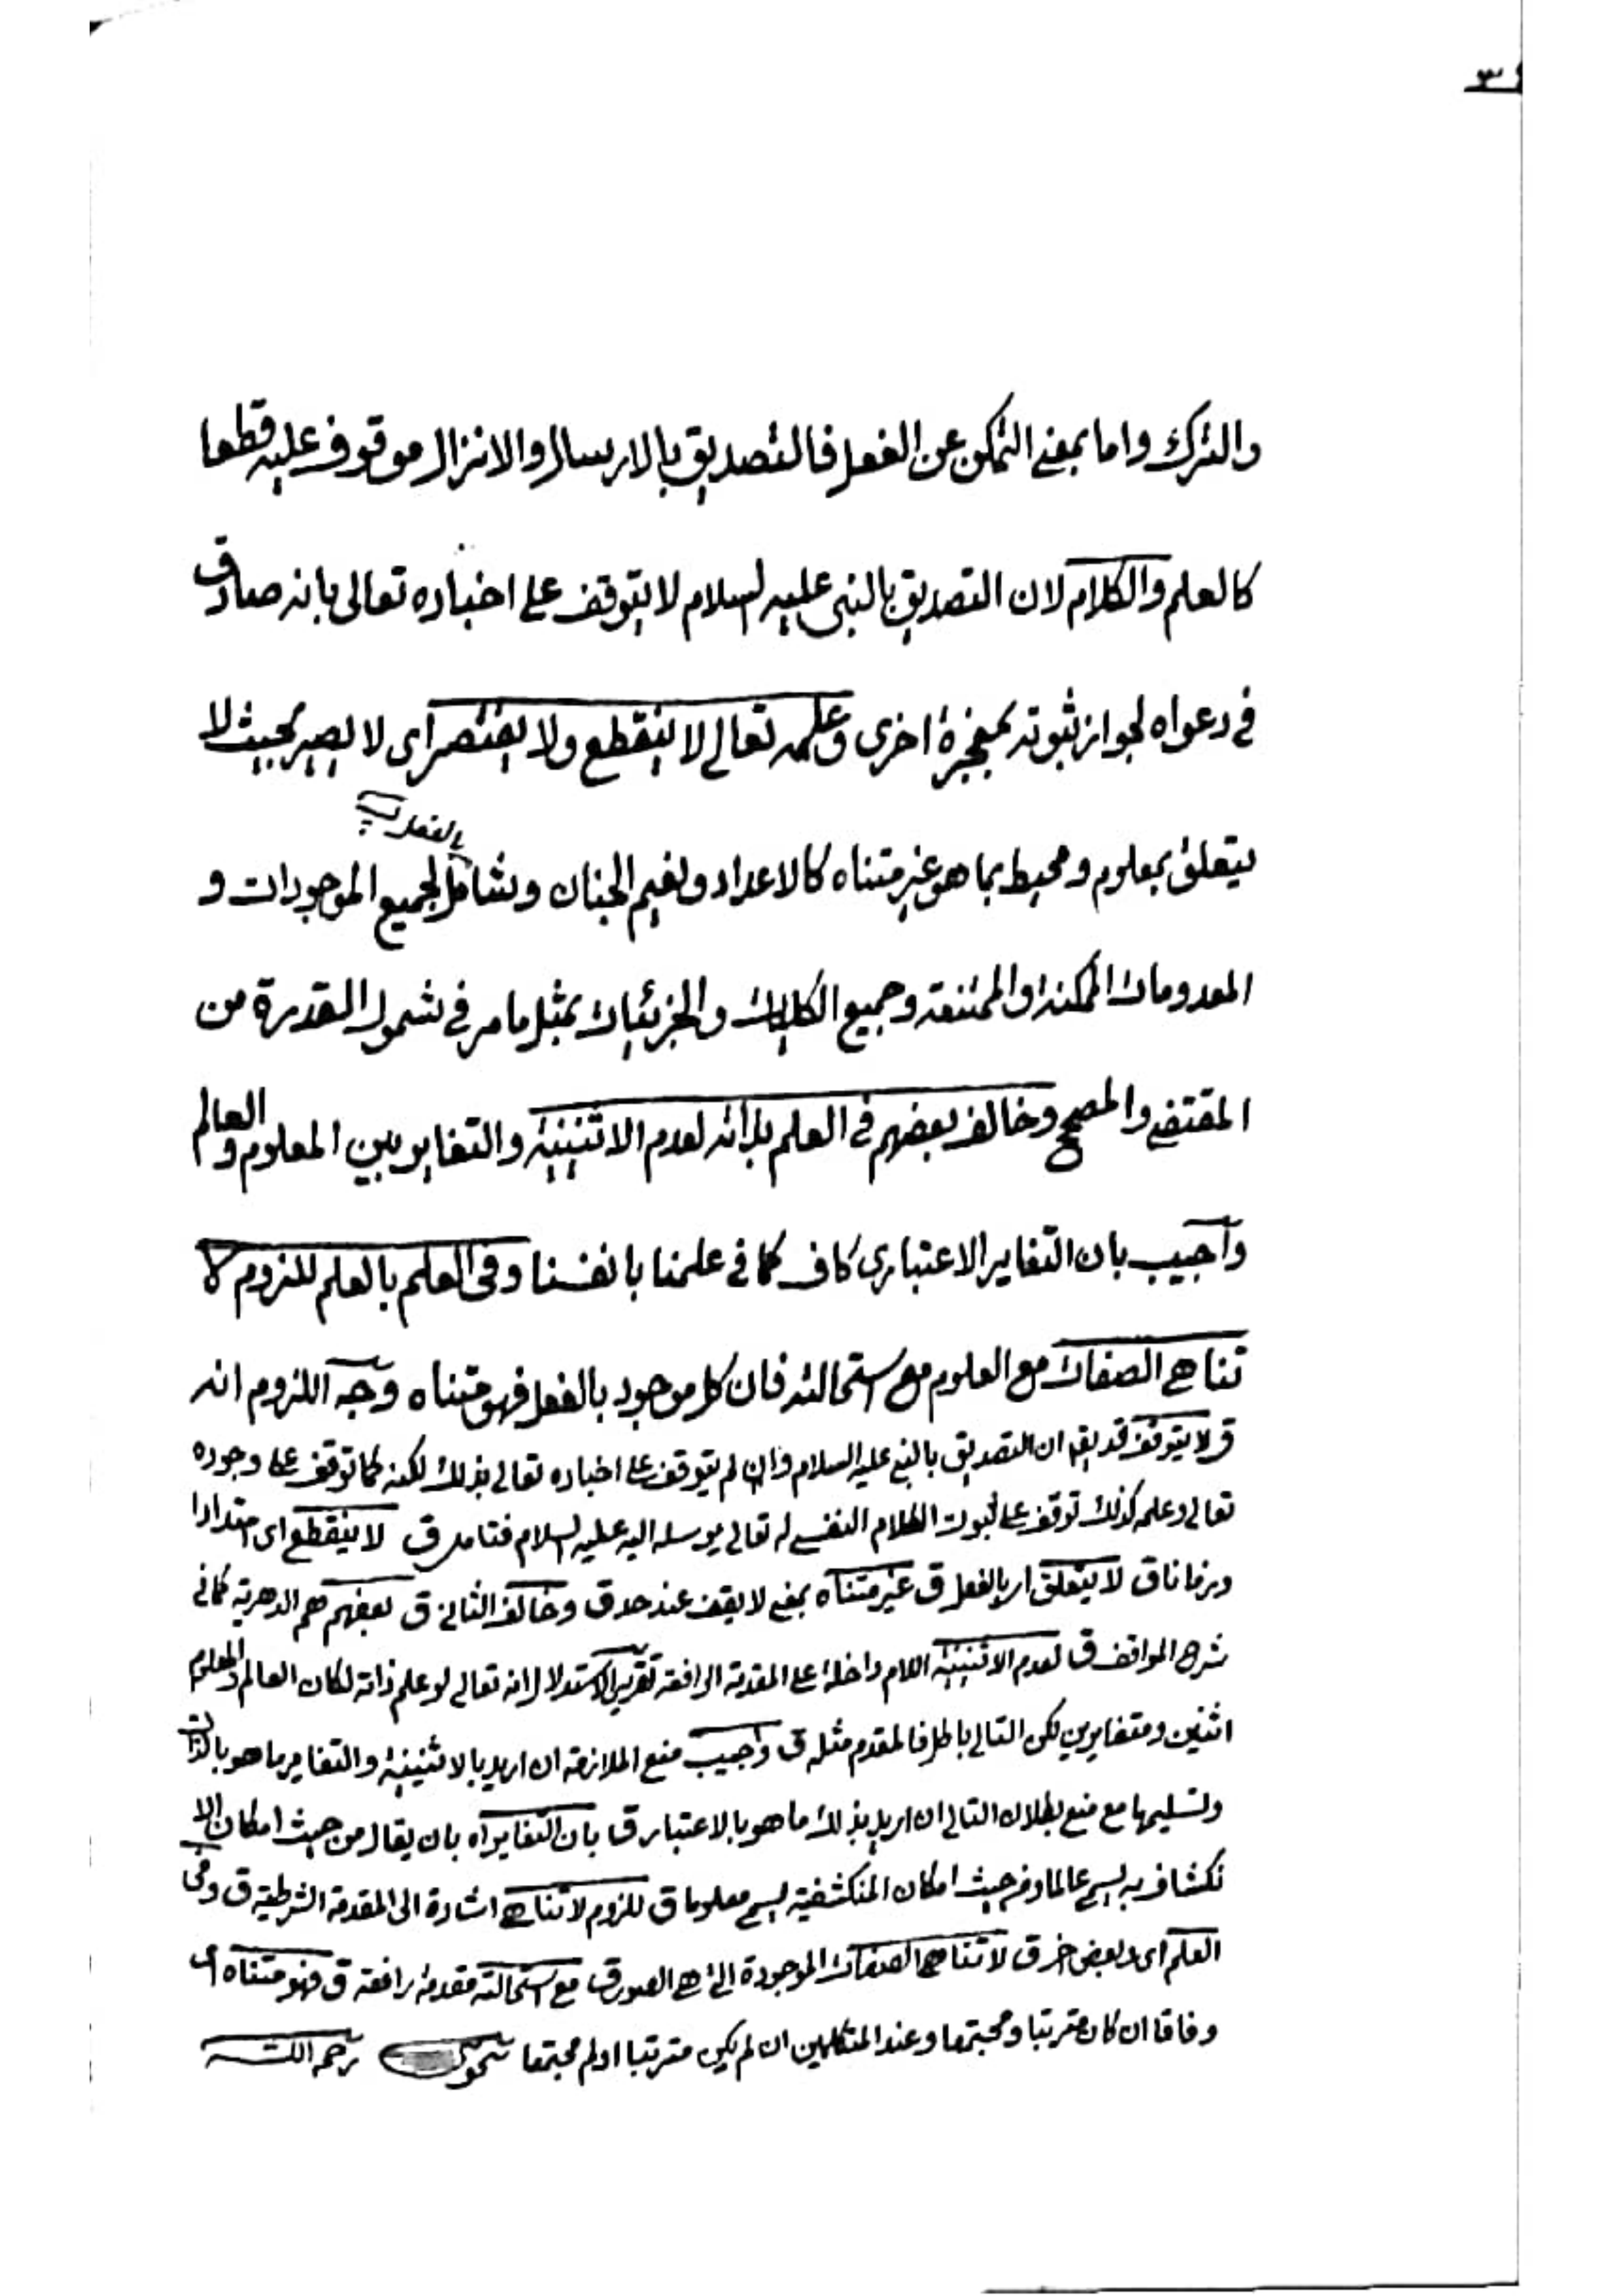 والترك واما بمعنى التمكن عن الفعل فالتصديق بالارسال والانزال موقوف عليه قطعا
كالعلم والكلام لان التصديق بالنبى عليه السلام لا يتوقف على اخباره تعالى بانه صادق
فى دعواه لجواز ثبوته بمعجزة اخرى وعلمه تعالى لا ينقطع ولا يقتصر اى لا يصير بحيث لا
بالفعل
يتعلق بمعلوم ومحيط بما هو غير متناه كالاعداد ونعيم الجنان وشامل لجميع الموجودات و
المعدومات الممكنة والممتنعة وجميع الكليات والجزئيات بمثل ما مر فى شمول القدرة من
المقتضى والمصحح وخالف بعضهم فى العلم بذاته لعدم الاثنينية والتغاير بين المعلوم والعالم
واجيب بان التغاير الاعتبارى كاف كما فى علمنا بانفسنا وفى العلم بالعلم للزوم لا
تناهى الصفات مع العلوم مع استحالته فان كل موجود بالفعل فهو متناه وجه اللزوم انه
ق لا يتوقف قد يق ان التصديق بالنبى عليه السلام وان لم يتوقف على اخباره تعالى بذلك لكنه كما توقف على وجوده
تعالى وعلمه كذلك توقف على ثبوت الكلام النفسى له تعالى يوسله اليه عليه السلام فتامل ق لا ينقطع اى امتدادا
وزمانا ق لا يتعلق اى بالفعل ق غير متناه بمعنى لا يقف عند حد ق وخالف الثانى ق بعضهم هم الدهرية كما فى
شرح المواقف ق لعدم الاثنينية اللام داخلة على المقدمة الرافعة تقرير الاستدلال انه تعالى لو علم ذاته لكان العالم والمعلوم
اثنين ومتغايرين لكن التالى باطل فالمقدم مثله ق واجيب منع الملازمة ان اريد بالاثنينية والتغاير ما هو بالذات
وتسليمها مع منع بطلان التالى ان اريد بذلك ما هو بالاعتبار ق بان التغاير اه بان يقال من حيث امكان الا
نكشاف به يسمى عالما ومن حيث امكان المنكشفية يسمى معلوما ق للزوم لا تناهى اشارة الى المقدمة الشرطية ق وفى
العلم اى وبعض اخر ق لا تناهى الصفات الموجودة التى هى الصور ق مع استحالته مقدمة رافعة ق فهو متناه اى
وفاقا ان كان مترتبا ومجتمعا وعند المتكلمين ان لم يكن مترتبا او لم مجتمعا رحمه الله